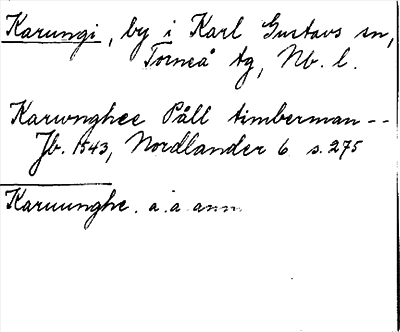 Karungi, by i Karl Gustavs sn,
Torneå tg, Nb. l.
Karwnghee Påll timberman --
Jb. 1543, Nordlander 6 s. 275
Karuunghe. a. a. anm.